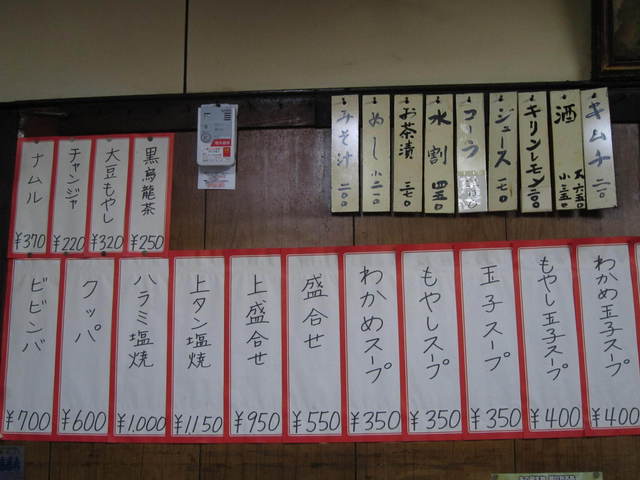 キムチ 二〇〇
酒 大 六五〇 小 三五〇
キリンレモン 二〇〇
ジュース 一七〇
コーラ
水割 四五〇
お茶漬 三七〇
めし 小 二一〇
みそ汁 二〇〇
黒烏龍茶 ¥250
大豆もやし ¥320
チャンジャ ¥220
ナムル ¥370
わかめ玉子スープ ¥400
もやし玉子スープ ¥400
玉子スープ ¥350
もやしスープ ¥350
わかめスープ ¥350
盛合せ ¥550
上盛合せ ¥950
上タン塩焼 ¥1,150
ハラミ塩焼 ¥1,000
クッパ ¥600
ビビンバ ¥700